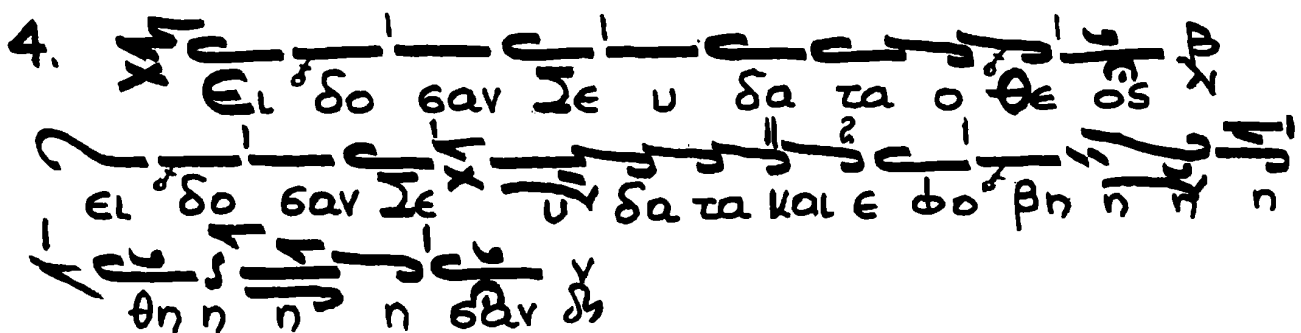 4. Ει δο σαν Σε υ δα τα ο Θε ος
ει δο σαν Σε υ δα τα και ε φο βη η η η
θη η η η σαν